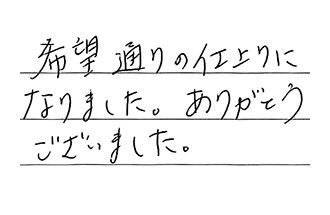 希望通りの仕上りに
なりました。ありがとう
ございました。